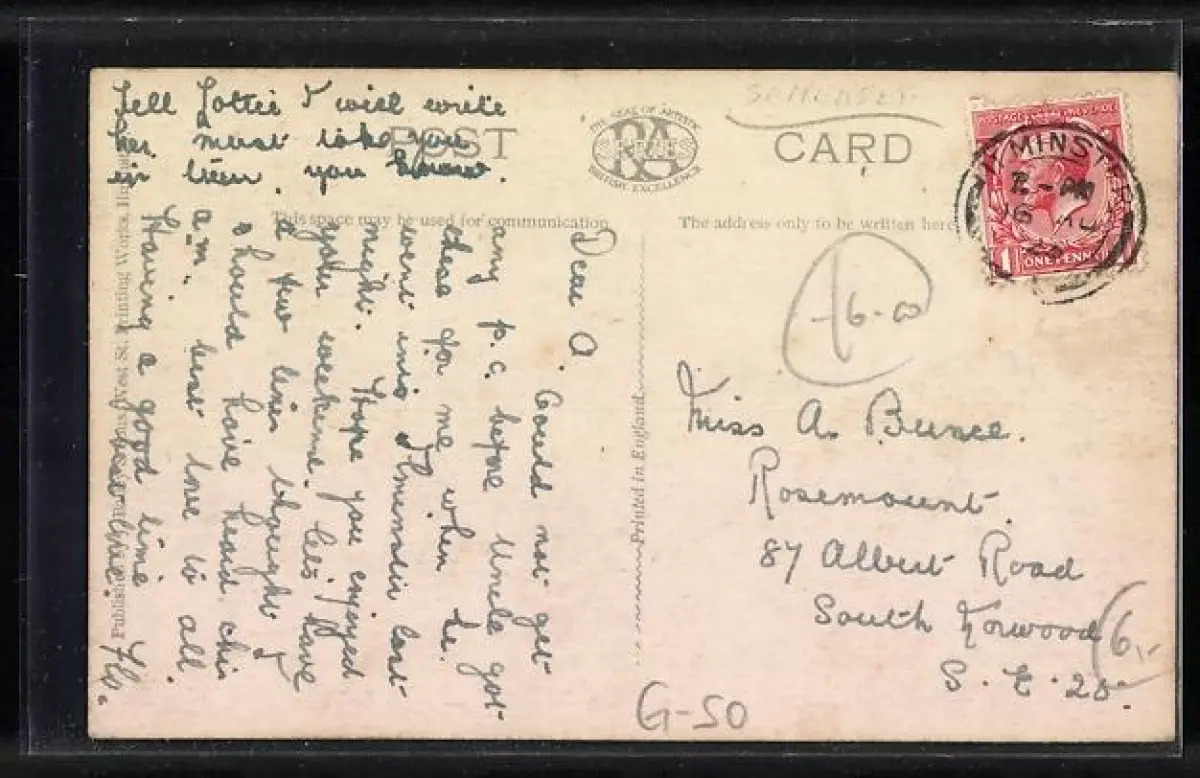 Tell Lottie I will write
her must take you
in turn. you know.
POST CARD
THE SEAL OF ARTISTIC
RA
BRITISH EXCELLENCE
SOMERSET
POSTAGE
ONE PENNY
1
ILMINSTER
16 AU
This space may be used for communication
The address only to be written here
Dear A. Could not get
any p.c. before Uncle got
these for me when he
went into Ilminster last
night. Hope you enjoyed
your weekend. let's have
a few lines thought I
should have heard this
a.m. best love to all.
Having a good time
Flo.
Printed in England
Miss A. Bunce.
Rosemount.
87 Albert Road
South Norwood
S. E. 25.
6-00
6
G-50